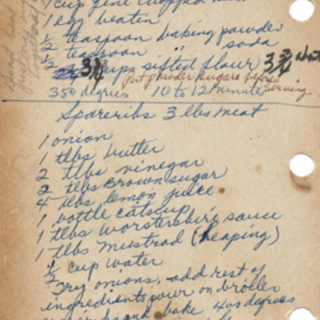 1 cup
1 egg beaten
1 teaspoon baking powder
½ teasoon " soda
cups sifted flour 3¾
Put powder sugare before
350 degrees 10 to 12 minutes serving
Spareribs 3 lbs meat
1 onion
1 tlbs butter
2 tlbs vinegar
2 tlbs brown sugar
4 tlbs lemon juice
1 bottle catsup
1 tlbs worstershire sauce
1 tlbs mustrad (heaping)
½ cup water
Fry onions, add rest of
ingredients pour on broiler
and bake 400 degrees